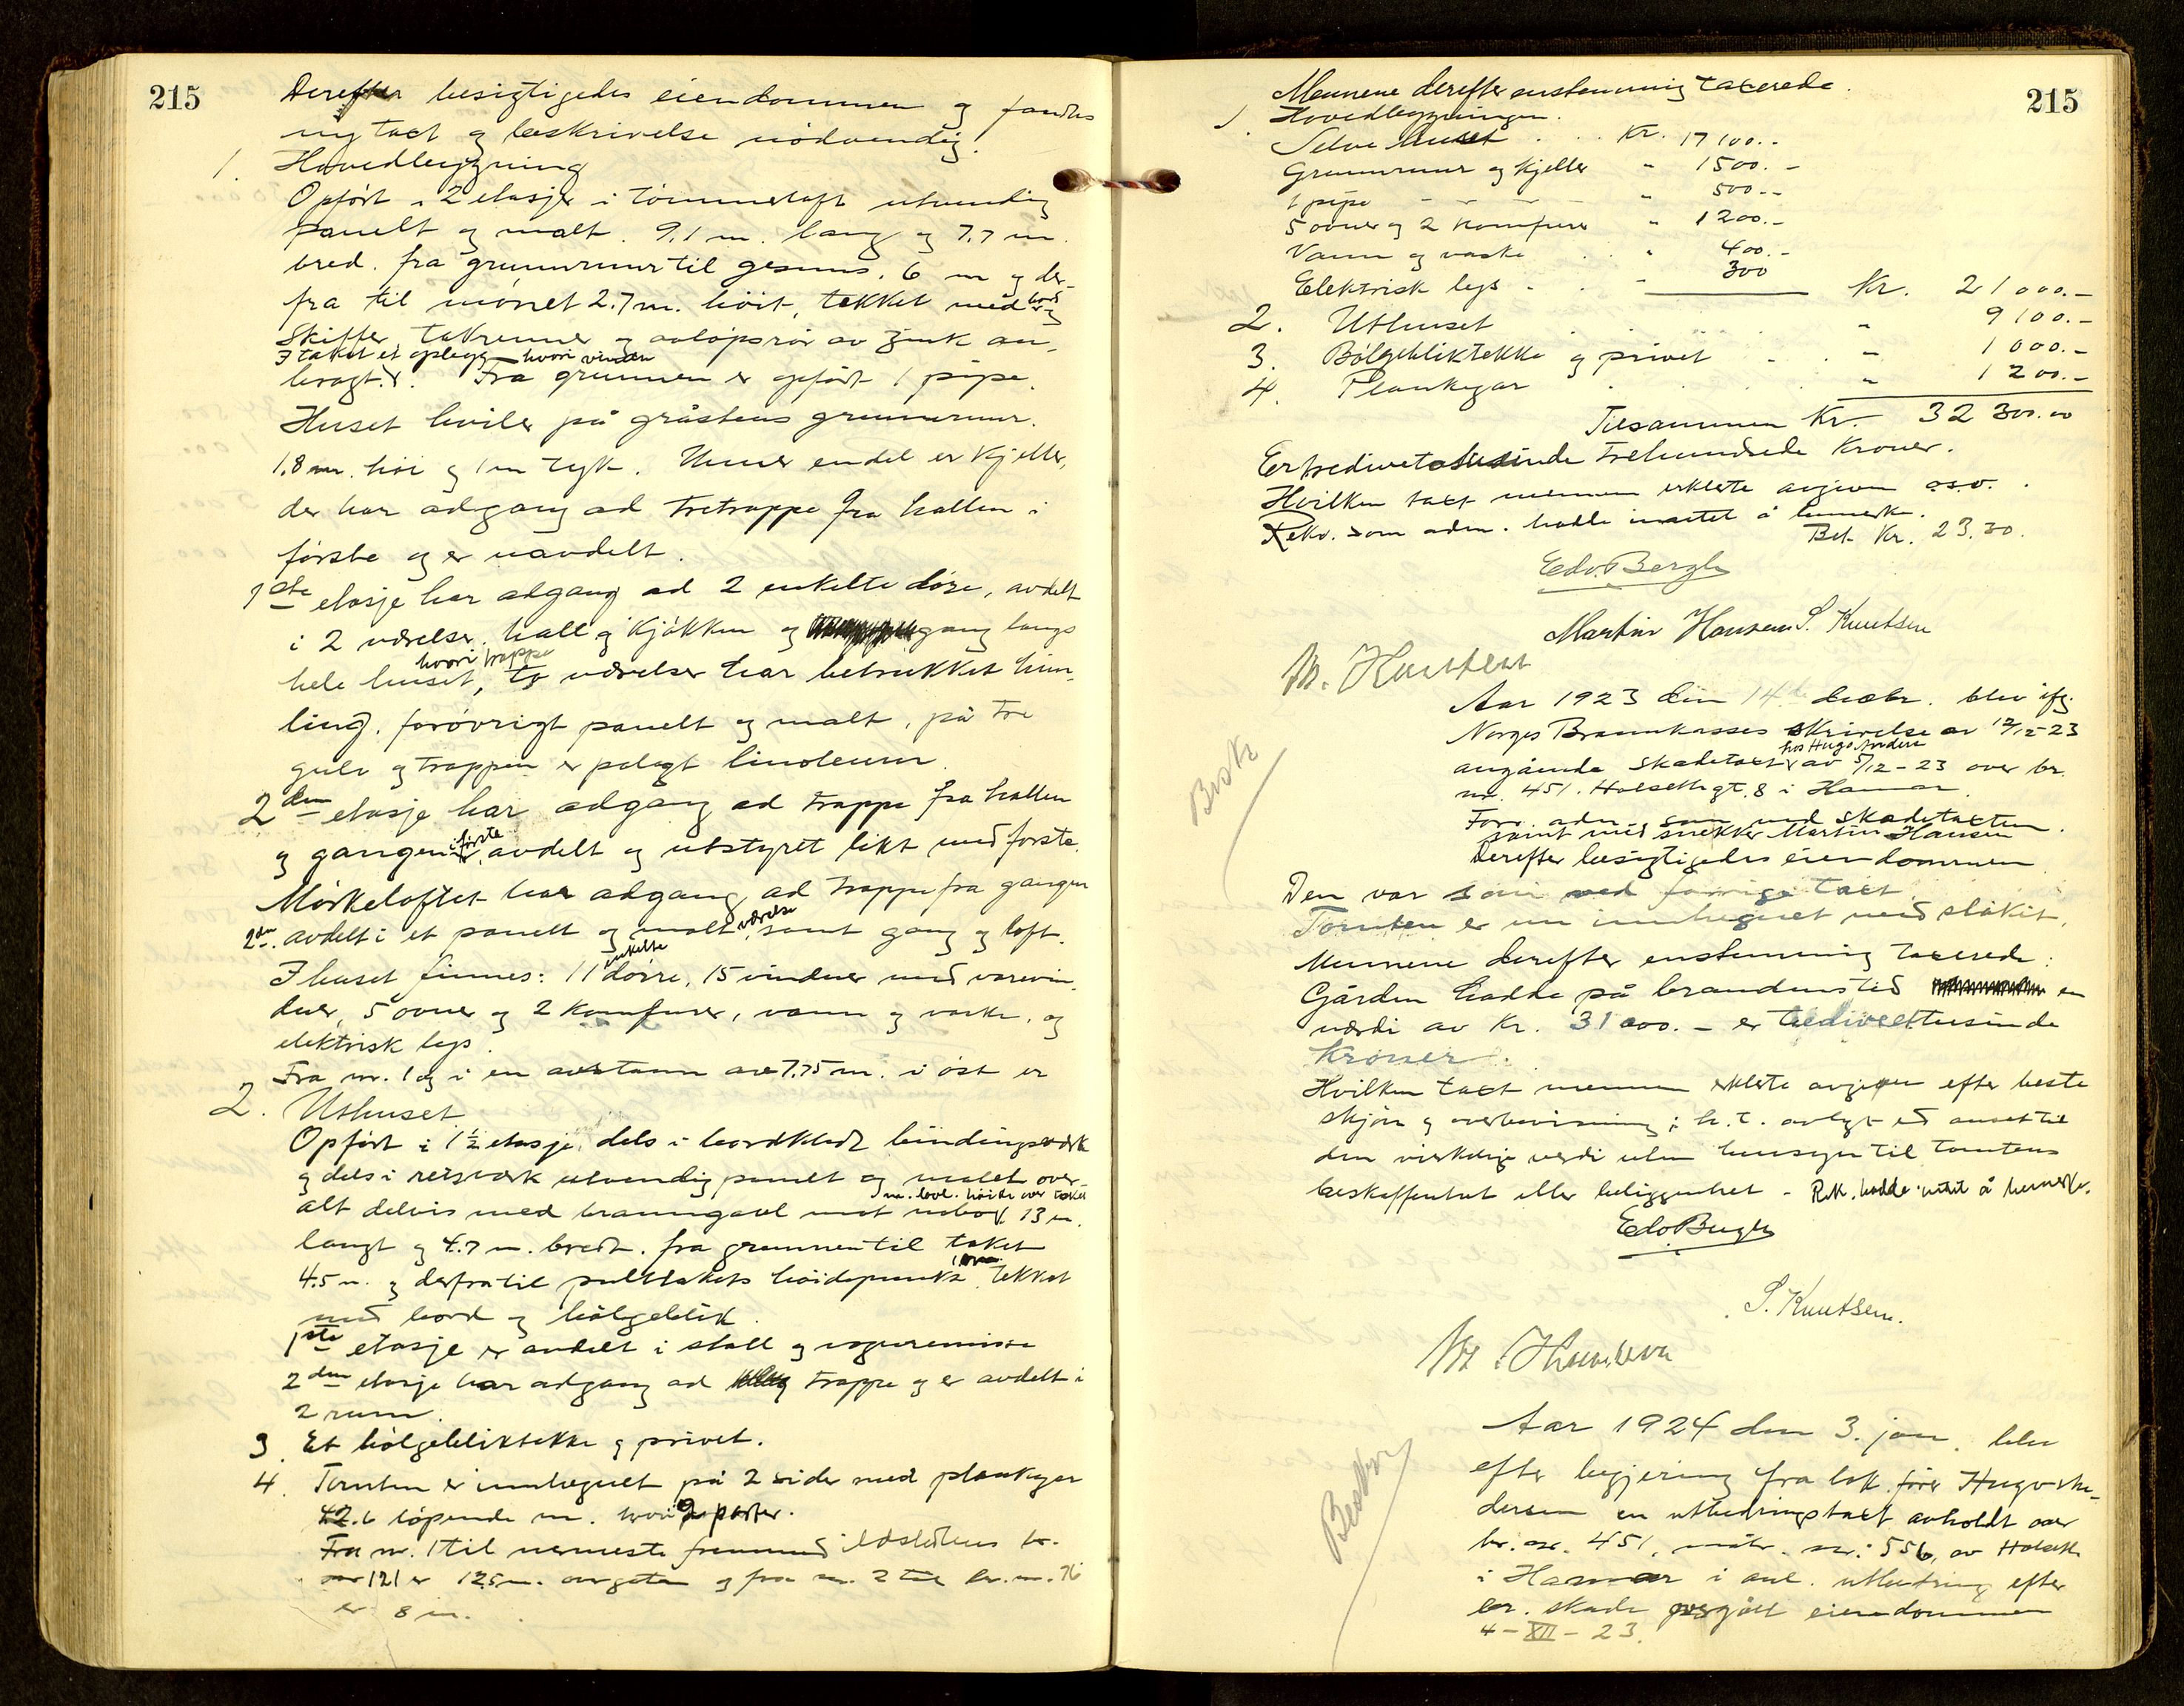 215
Derefter besigtigedes eiendommen og fandtes
ny taxt og beskrivelse nödvendig.
1. Hovedbygning
Opfört i 2 etasjer i tömmerloft utvendig
panelt og malt. 9,1 m. lang og 7,7 m.
bred. fra grunnmur til gesims. 6 m og der-
fra til mönet 2.7 m. höit, tekket med bord og
skiffer, takrenner og avlöpsrör av zink an-
I taket et oplegg hvori vinduer
bragt. Fra grunnen er opfört 1 pipe.
Huset hviler på gråstens grunnmur.
1.8 m. höi og 1 m tyk. Unner endel er kjeller,
der har adgang ad tretrappe fra hallen i
förste og er uavdelt.
1ste etasje har adgang ad 2 enkelte döre, avdelt
i 2 værelser, hall og kjökken og gang langs
hvori trappe
hele huset, to værelser har betrukket him-
ling, forövrigt panelt og malt, på tre
gulv og trappen er pålagt linoleum.
2den etasje har adgang ad trappe fra hallen
og gangen i förste, avdelt og utstyret likt med förste.
Mörkeloftet har adgang ad trappe fra gangen
2den. avdelt i et panelt og malt værelse samt gang og loft.
I huset finnes: 11 enkelte dörre, 15 vinduer med varevin-
duer, 5 ovner og 2 komfurer, vann og vaske, og
elektrisk lys.
Fra nr. 1 og i en avstann av 7,75 m. i öst er
2. Uthuset
Opfört i 1 1/2 etasje, dels i bordklædt bindingsverk
og dels i reisverk utvendig panelt og malet over-
alt delvis med branngavl mot nabo, 13 m.
langt og 4.7 m. bredt. fra grunnen til taket
4.5 m. og derfra til pulttakets höidepunkt 1 m. tekket
med bord og bölgeblik.
1ste etasje er avdelt i stall og vognremisse
2den etasje har adgang ad trappe og er avdelt i
2 rum.
3. Et bölgebliktekke og privet.
4. Tomten er innhegnet på 2 sider med plankgar
42.6 löpende m. hvori 2 porter.
Fra nr. 1 til nermeste fremmed ildsteders br.
nr 121 er 12,5 m. over gaten og fra nr. 2 til br. nr. 76
er 8 m.
215
Mennene derefter enstemmig taxerede.
1. Hovedbygningen.
Selve huset . . Kr. 17100.-
Grunnmur og kjeller " 1500.-
1 pipe - - - " 500.-
5 ovner og 2 komfurer " 1200.-
Vann og vaske . " 400.-
Elektrisk lys . . " 300 Kr. 21000.-
2. Uthuset . . . " 9100.-
3. Bölgebliktekke og privet . . " 1000.-
4. Plankegar . . . " 1200.-
Tilsammen Kr. 32300.00
Er tredivetotusinde trehundrede kroner.
Hvilken taxt mennene erklærte avgiven osv.
Rekv. som adm. hadde intet å bemerke.
Bet. Kr. 23.30.
Edv. Bergh
Martin Hansen S. Knutsen
Aar 1923 den 14. decbr. blev ifg.
Norges Brannkasses skrivelse av 12/12-23
angående skadetaxt av 5/12-23 over br.
nr. 451. Holsethgt. 8 i Hamar.
Forr. adm. som ved skadetaxten.
samt med snekker Martin Hansen
Derefter besigtigedes eiendommen
Den var som ved forrige taxt
Tomten er nu innhegnet med stakit.
Mennene derefter enstemmig taxerede:
Gården hadde på brandens tid en
værdi av Kr. 31000.- er trediveettusinde
kroner.
Hvilken taxt mennene erklærte avgiven efter beste
skjön og overbevisning i h.t. avlagt ed anset til
den virkelige verdi uten hensyn til tomtens
beskaffenhet eller beliggenhet. - Rek. hadde intet å bemerke.
Edv Bergh
S. Knutsen.
Aar 1924 den 3. jan. blev
efter begjering fra lok. förer Hugo An-
dersen en utbedringstaxt avholdt over
br. nr. 451, matr. nr. 556, av Holseth
i Hamar i anl. utbedring efter
br. skade overgått eiendommen
4-XII-23.